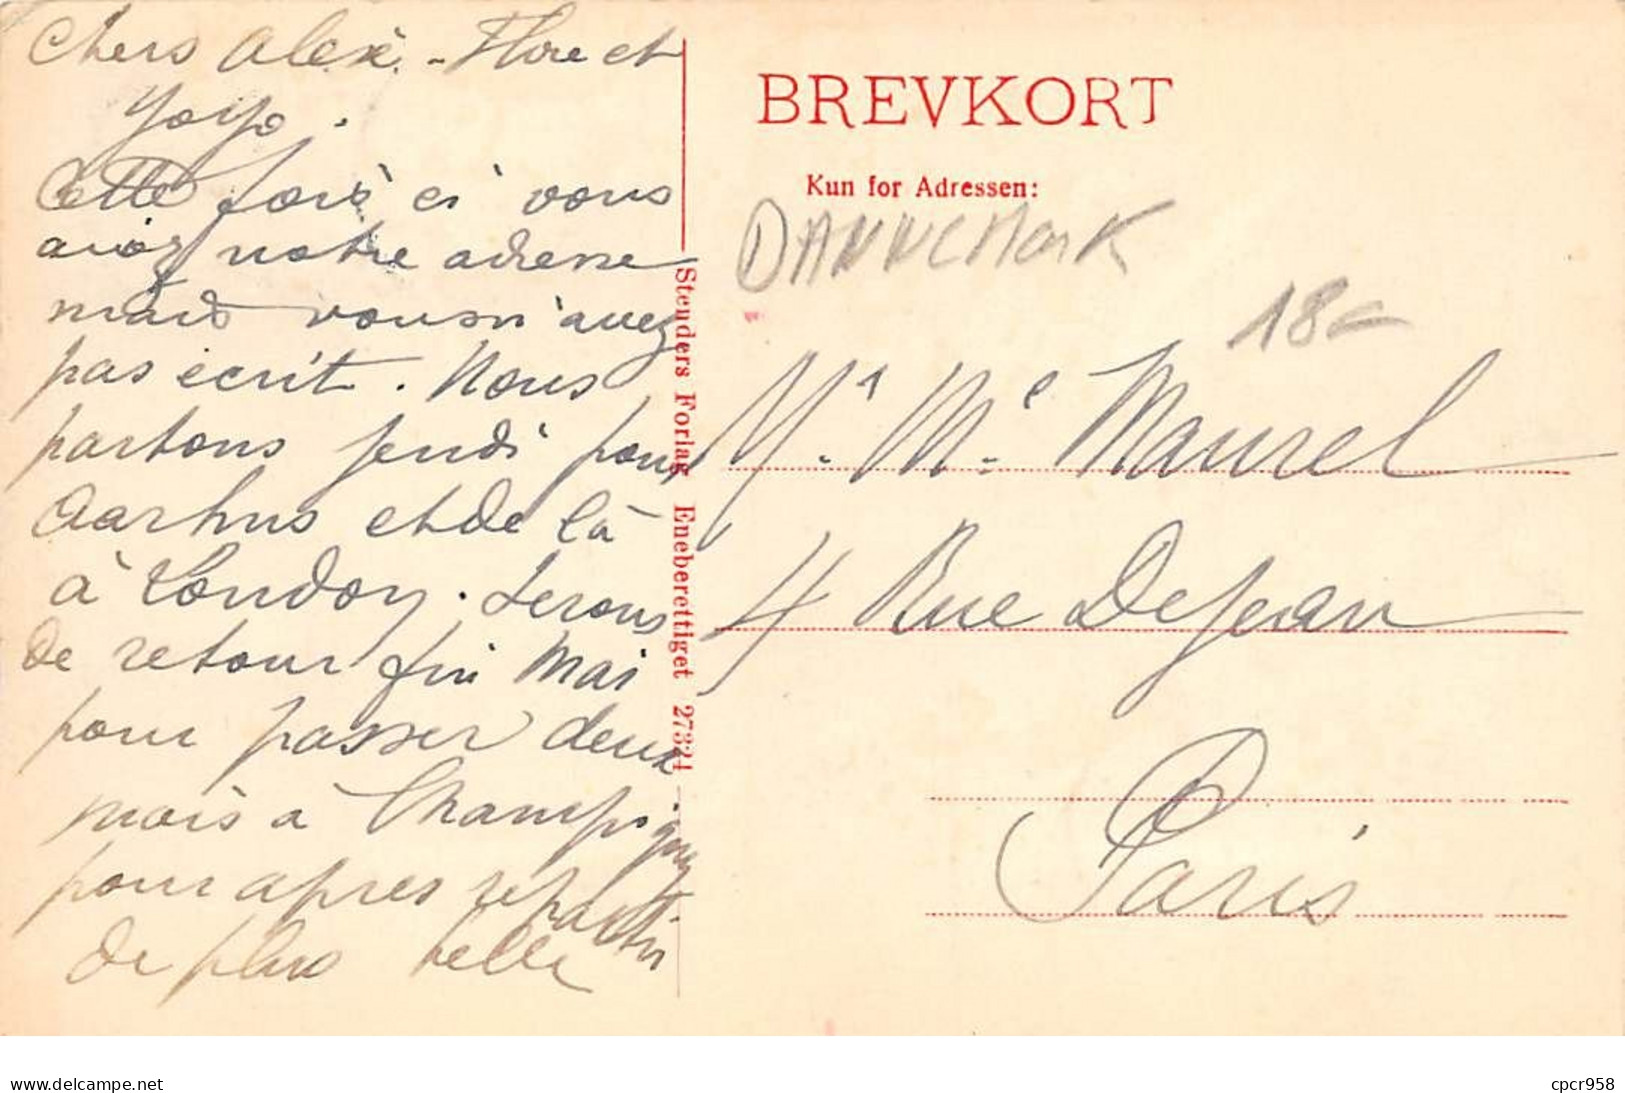 Chers Alex. - Flore et
Yoyo.
Cette fois ci vous
aviez notre adresse
mais vous n'avez
pas écrit. Nous
partons jeudi pour
Aarhus et de là
à London. Serons
de retour fin Mai
pour passer deux
mois à Champigny
pour apres repartir
de plus belle
Stenders Forlag Eneberettiget 27321
BREVKORT
Kun for Adressen:
DANNEMARK
18
Mr. Me. Maurel
4 Rue Dejean
Paris
www.delcampe.net
cpcr958